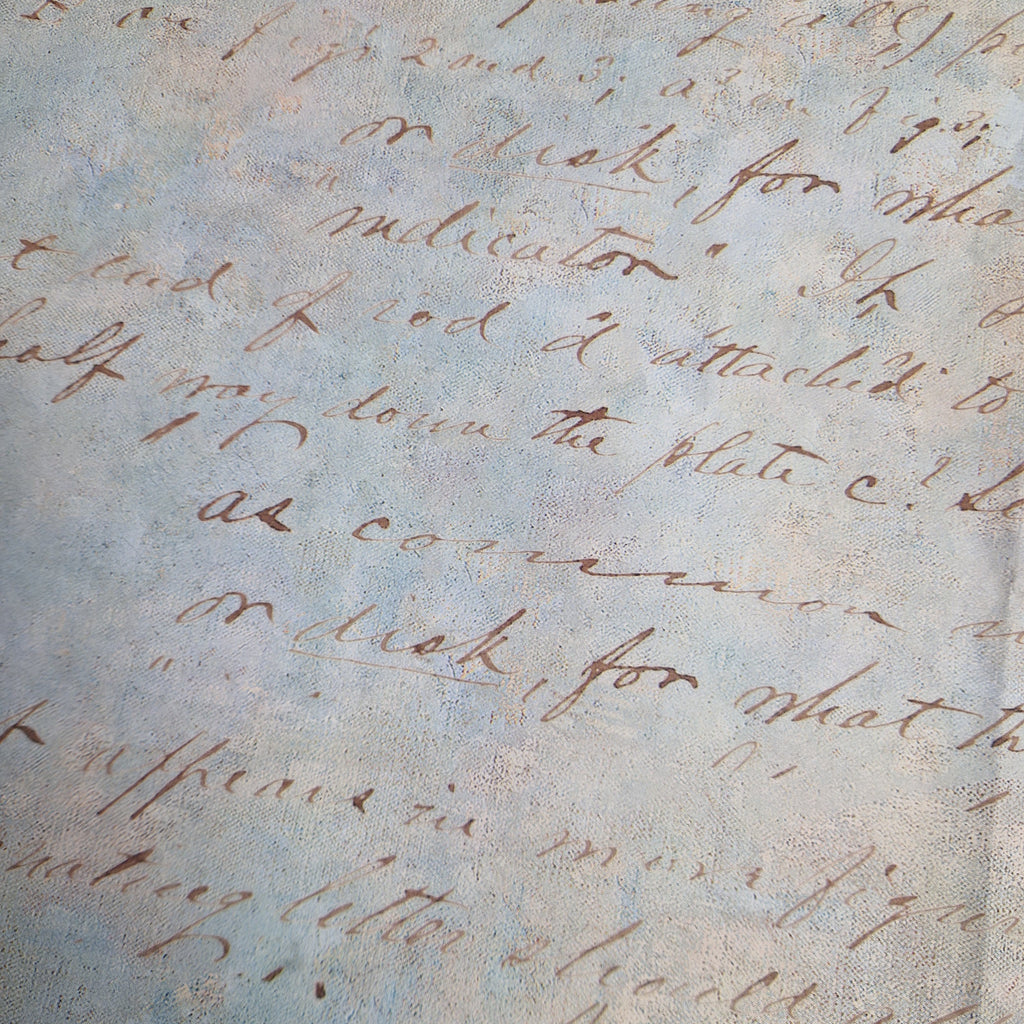 in figs 2 and 3; a² in fig. 3;
or disk, for wha
indicator" If
t end of rod d attached to
half way down the plate c?
as common
or disk, for what th
appears in more figure
letter should